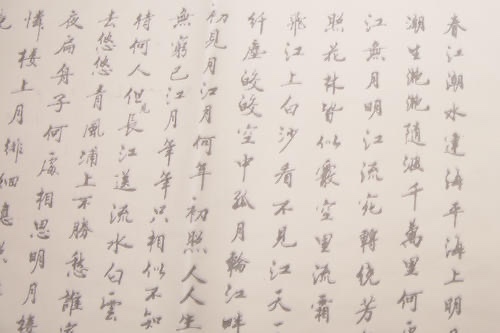 春江潮水連海平海上明
潮生灩灩隨波千萬里何
江無月明江流宛轉繞芳
照花林皆似霰空里流霜
飛江上白沙看不見江天一
纤塵皎皎空中孤月輪江畔
初見月江月何年初照人人生
無窮已江月年年只相似不知
待何人但見長江送流水白雲
去悠悠青風浦上不勝愁誰家
夜扁舟子何處相思明月樓
憐樓上月徘徊應